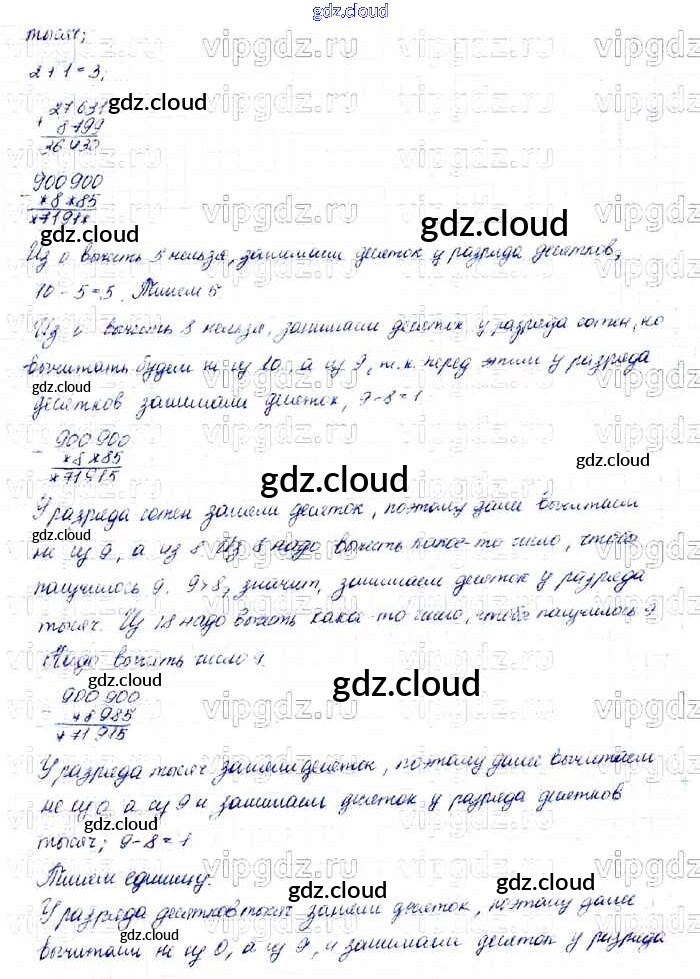 gdz.cloud
тысяч;
2+1=3;
27631
+ 8799
36430
gdz.cloud
900900
- *8*85
*7191*
gdz.cloud
gdz.cloud
Из 0 вычесть 5 нельзя, занимаем десяток у разряда десятков,
10-5=5. Пишем 5
Из 0 вычесть 8 нельзя, занимаем десяток у разряда сотен, но
вычитать будем не из 10, а из 9, т.к. перед этим у разряда
gdz.cloud
десятков занимали десяток, 9-8=1
900900
- *8*85
*71915
gdz.cloud
gdz.cloud
У разряда сотен заняли десяток, поэтому далее вычитаем
не из 9, а из 8. Из 8 надо вычесть какое-то число, чтобы
получилось 9. 9>8, значит, занимаем десяток у разряда
тысяч. Из 18 надо вычесть како-то число, чтобы получилось 9
Надо вычесть число 9.
gdz.cloud
gdz.cloud
900900
- *8985
*71915
У разряда тысяч заняли десяток, поэтому далее вычитаем
не из 0, а из 9 и занимаем десяток у разряда десятков
тысяч; 9-8=1
gdz.cloud
Пишем единицу.
gdz.cloud
У разряда десятков тысяч заняли десяток, поэтому далее
вычитаем не из 0, а из 9, и занимаем десяток у разряда
gdz.cloud
gdz.cloud